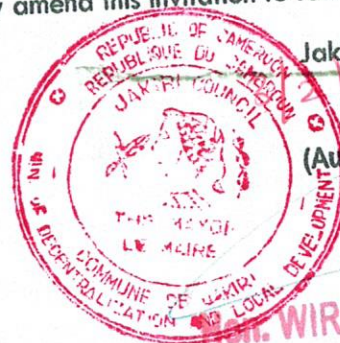 amend this invitation to
Jak
REPUBLIC OF CAMEROON
REPUBLIQUE DU CAMEROUN
JAKIRI COUNCIL
(Au
THE MAYOR
LE MAIRE
COMMUNE DE JAKIRI
MIN. OF DECENTRALIZATION AND LOCAL DEVELOPMENT
Hon. WIR